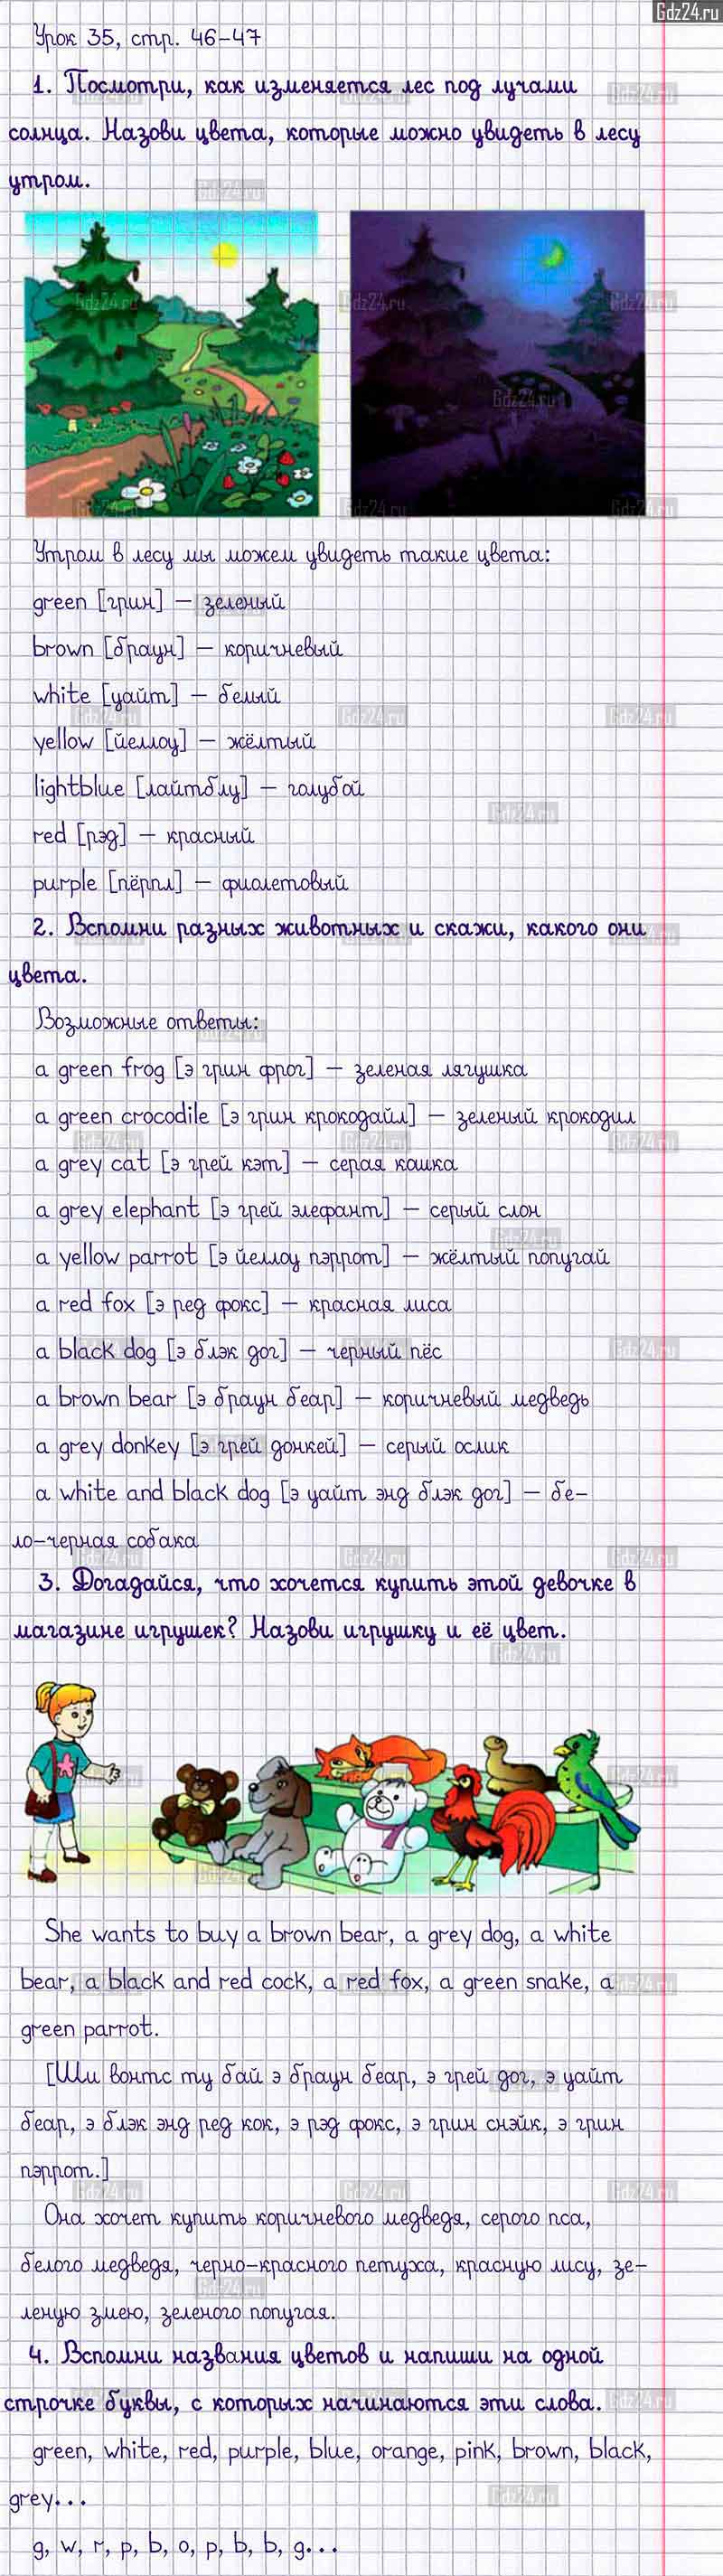 Gdz24.ru
Урок 35, стр. 46-47
1. Посмотри, как изменяется лес под лучами
солнца. Назови цвета, которые можно увидеть в лесу
утром.
Утром в лесу мы можем увидеть такие цвета:
green [грин] – зеленый
brown [браун] – коричневый
white [уайт] – белый
yellow [йеллоу] – жёлтый
lightblue [лайтблу] – голубой
red [рэд] – красный
purple [пёрпл] – фиолетовый
2. Вспомни разных животных и скажи, какого они
цвета.
Возможные ответы:
a green frog [э грин фрог] – зеленая лягушка
a green crocodile [э грин крокодайл] – зеленый крокодил
a grey cat [э грей кэт] – серая кошка
a grey elephant [э грей элефант] – серый слон
a yellow parrot [э йеллоу пэррот] – жёлтый попугай
a red fox [э ред фокс] – красная лиса
a black dog [э блэк дог] – черный пёс
a brown bear [э браун беар] – коричневый медведь
a grey donkey [э грей донкей] – серый ослик
a white and black dog [э уайт энд блэк дог] – бе-
ло-черная собака
3. Догадайся, что хочется купить этой девочке в
магазине игрушек? Назови игрушку и её цвет.
She wants to buy a brown bear, a grey dog, a white
bear, a black and red cock, a red fox, a green snake, a
green parrot.
[Ши вонтс ту бай э браун беар, э грей дог, э уайт
беар, э блэк энд ред кок, э рэд фокс, э грин снэйк, э грин
пэррот.]
Она хочет купить коричневого медведя, серого пса,
белого медведя, черно-красного петуха, красную лису, зе-
леную змею, зеленого попугая.
4. Вспомни названия цветов и напиши на одной
строчке буквы, с которых начинаются эти слова.
green, white, red, purple, blue, orange, pink, brown, black,
grey...
g, w, r, p, b, o, p, b, b, g...